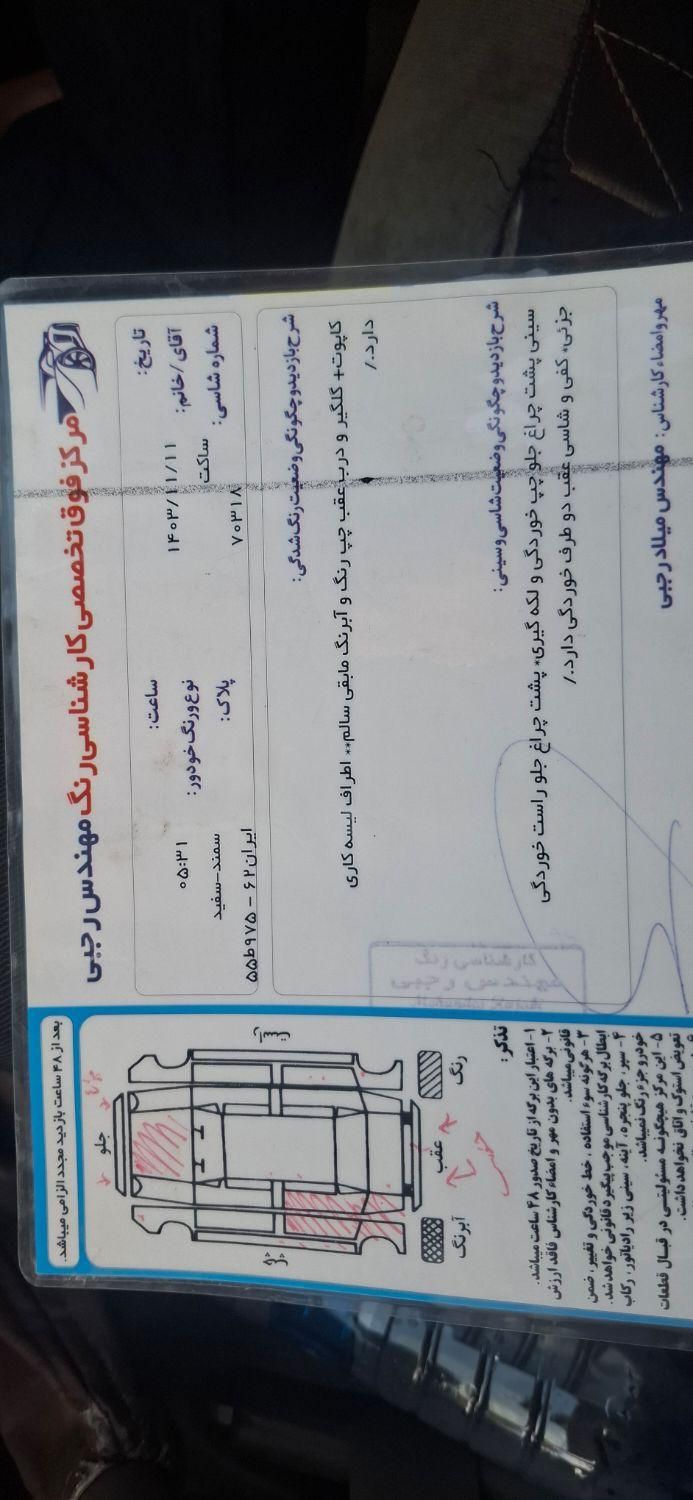 مرکز فوق تخصصی کارشناسی رنگ مهندس رجبی
تاریخ: ۱۴۰۳/۱۱/۱۱ ساعت: ۰۵:۳۱
آقای/خانم: ساکت نوع ورنگ خودور: سمند-سفید
شماره شاسی: ۷۰۳۱۸ پلاک: ایران ۶۲ - ۵۵ط۹۷۵
شرح بازدید و چگونگی وضعیت رنگ شدگی:
کاپوت+ گلگیر و درب عقب چپ رنگ و آبرنگ مابقی سالم** اطراف لیسه کاری
دارد./
شرح بازدید و چگونگی وضعیت شاسی و سینی:
سینی پشت چراغ جلو چپ خوردگی و لکه گیری* پشت چراغ جلو راست خوردگی
جزئی* کفی و شاسی عقب دو طرف خوردگی دارد./
مهر و امضاء کارشناس: مهندس میلاد رجبی
کارشناسی رنگ
مهندس رجبی
بعد از ۴۸ ساعت بازدید مجدد الزامی میباشد.
جلو
عقب
رنگ
آبرنگ
تذکر:
۱- اعتبار این برگه از تاریخ صدور ۴۸ ساعت میباشد.
۲- برگه های بدون مهر و امضاء کارشناس فاقد ارزش
قانونی میباشد.
۳- هرگونه سوء استفاده، خط خوردگی و تغییر، ضمن
ابطال برگه کارشناسی موجب پیگیرد قانونی خواهد شد.
۴- سپر، جلو پنجره، آینه، سینی زیر رادیاتور، رکاب
خودرو جزء رنگ نمیباشد.
۵- این مرکز هیچگونه مسئولیتی در قبال قطعات
تعویض استوک و اتاق نخواهد داشت.